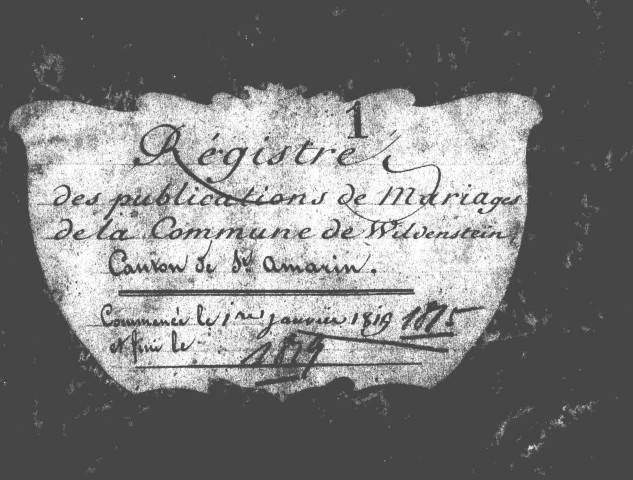 1
Régistre
des publications de Mariages
de la Commune de Wildenstein
Canton de St amarin.
Commencée le 1er janvier 1819 1875
et fini le 1879